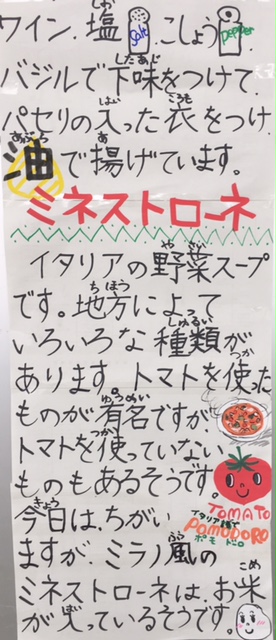 ワイン、塩 Salt、こしょう Pepper
バジルで下味をつけて、
パセリの入った衣をつけ
油で揚げています。
ミネストローネ
イタリアの野菜スープ
です。地方によって
いろいろな種類が
あります。トマトを使った
ものが有名ですが、
トマトを使っていない
ものもあるそうです。
TOMATO
今日は、ちがい
イタリア語で
POMODORO
ポモドーロ
ますが、ミラノ風の
ミネストローネは、お米
が入っているそうです